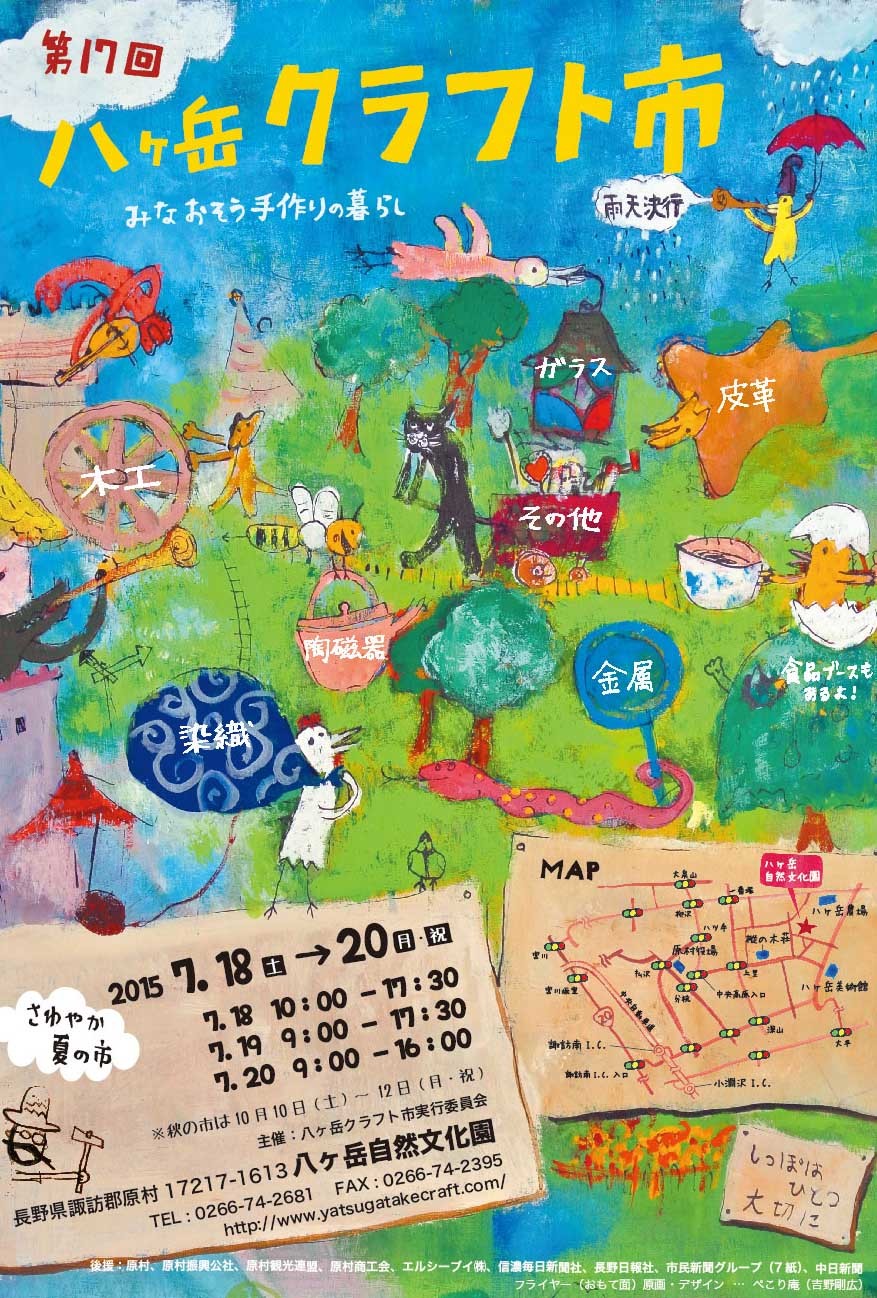 第17回
八ヶ岳クラフト市
みなおそう手作りの暮らし
雨天決行
ガラス
皮革
木工
その他
陶磁器
金属
食品ブースも
あるよ!
染織
MAP
八ヶ岳
自然文化園
大泉山
一番塚
柳沢
八ヶ岳農場
ハツ手
樅の木荘
原村役場
宮川
払沢
上里
八ヶ岳美術館
宮川坂室
中央高原入口
分杭
中央自動車道
20
深山
大平
諏訪南I.C.
諏訪南I.C.入口
小淵沢I.C.
2015 7.18土→20月・祝
7.18 10:00-17:30
7.19 9:00-17:30
7.20 9:00-16:00
さわやか
夏の市
※秋の市は10月10日(土)~12日(月・祝)
主催:八ヶ岳クラフト市実行委員会
長野県諏訪郡原村 17217-1613 八ヶ岳自然文化園
TEL:0266-74-2681 FAX:0266-74-2395
http://www.yatsugatakecraft.com/
しっぽは
ひとつ
大切に
後援:原村、原村振興公社、原村観光連盟、原村商工会、エルシーブイ㈱、信濃毎日新聞社、長野日報社、市民新聞グループ(7紙)、中日新聞
フライヤー(おもて面)原画・デザイン … ぺこり庵(吉野剛広)